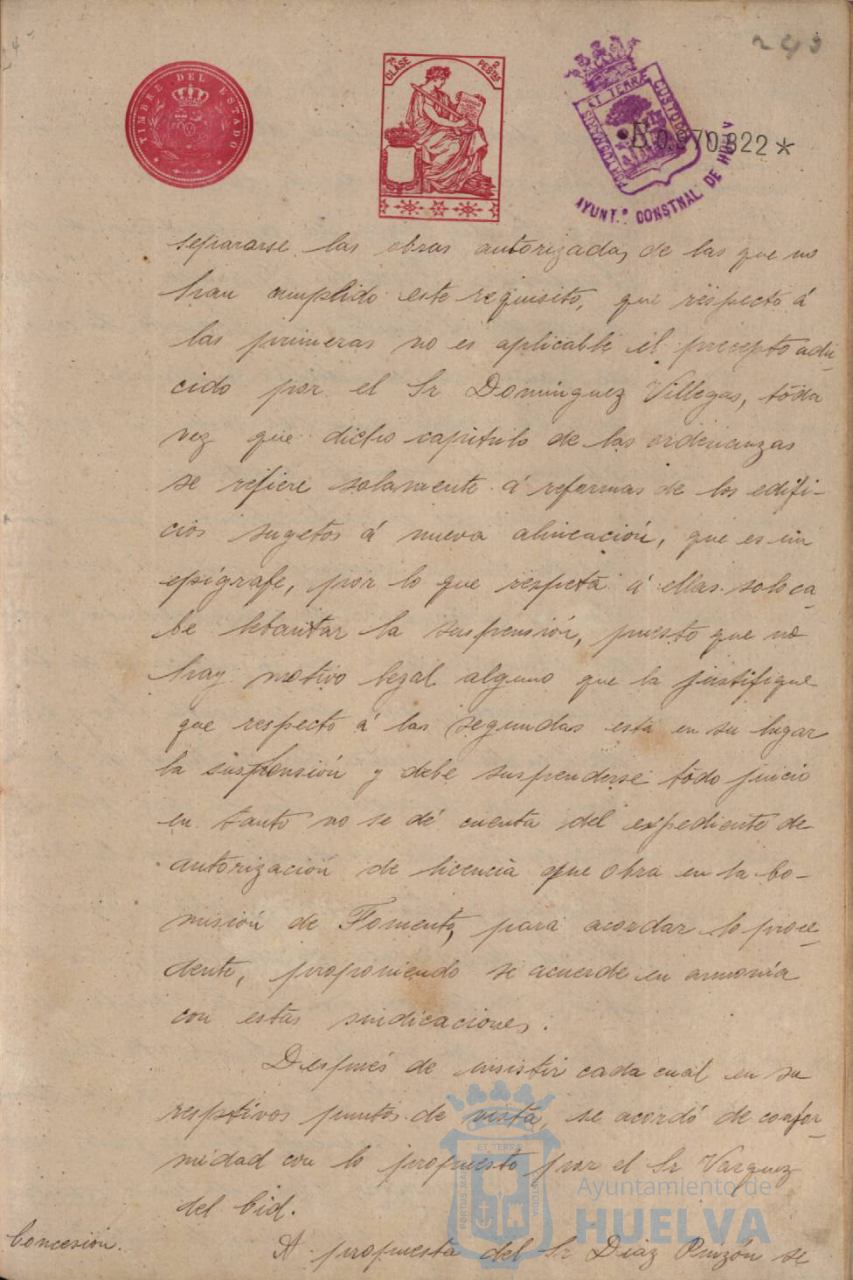 243
TIMBRE DEL ESTADO
7ª CLASE 2 PESETAS
PORTUS MARIS ET TERRÆ CUSTODIA
AYUNT.º CONSTNAL DE HUELV
B.0.970.822*
separarse las obras autorizadas, de las que no
han cumplido este requisito, que respecto á
las primeras no es aplicable el precepto adu-
cido por el Sr Domínguez Villegas, toda
vez que dicho capítulo de las ordenanzas
se refiere solamente á reformas de los edifi-
cios sugetos á nueva alineación, que es un
epígrafe, por lo que respecta á ellas solo ca-
be lebantar la suspensión, puesto que no
hay motivo legal alguno que la justifique
que respecto á las segundas está en su lugar
la suspensión y debe suspenderse todo juicio
en tanto no se dé cuenta del expediente de
autorización de licencia que obra en la Co-
misión de Fomento, para acordar lo proce-
dente, proponiendo se acuerde en armonía
con estas sindicaciones.
Después de insistir cada cual en su
resptivos puntos de vista, se acordó de confor-
midad con lo propuesto por el Sr Vazquez
del Cid.
Concesión.
A propuesta del Sr Diaz Pinzón se
Ayuntamiento de
HUELVA